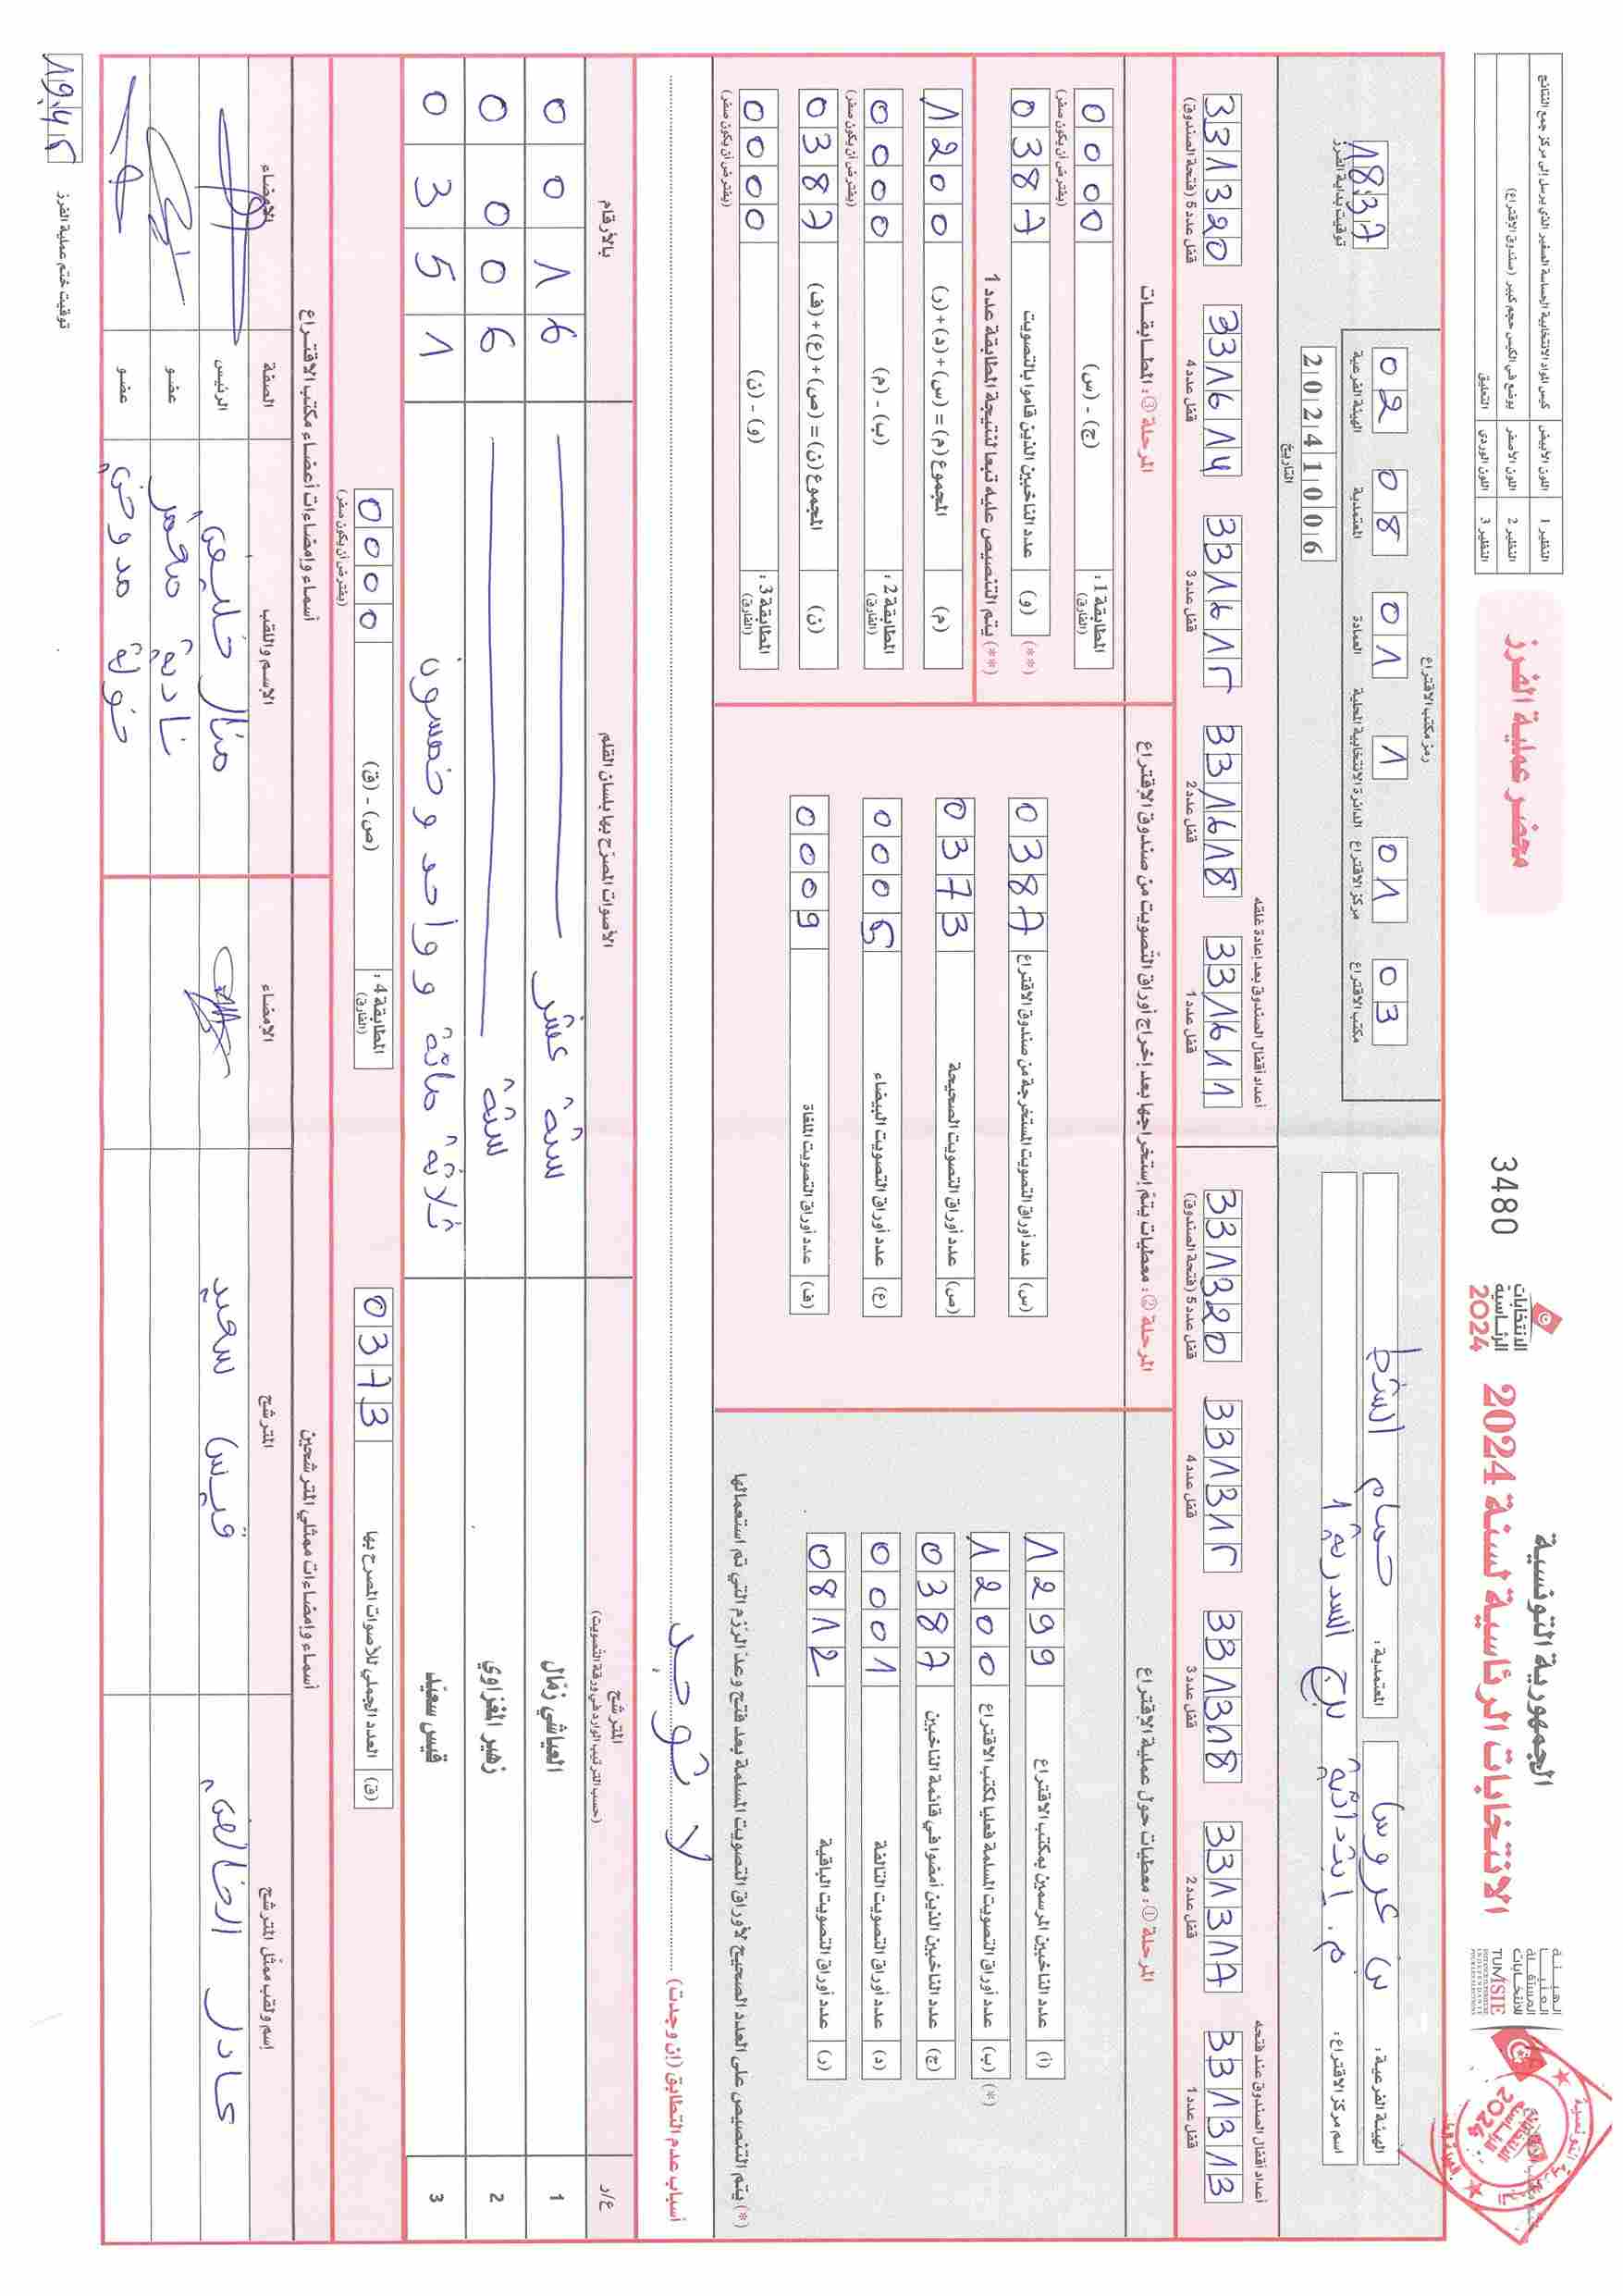 الجمهورية التونسية
الانتخابات الرئاسية لسنة 2024
الانتخابات
الرئاسية
2024
3480
محضر عملية الفرز
النظير 1 اللون الأبيض كيس المواد الانتخابية الحساسة الصغير الذي يرسل إلى مركز جمع النتائج
النظير 2 اللون الأصفر يوضع في الكيس حجم كبير (صندوق الاقتراع)
النظير 3 اللون الوردي التعليق
الهيئة الفرعية : بن عروس
المعتمدية : حمام الشط
اسم مركز الاقتراع : م. ابتدائية برج السدرية 1
رمز مكتب الاقتراع
02 08 01 1 01 03
الهيئة الفرعية المعتمدية العمادة الدائرة الانتخابية المحلية مركز الاقتراع مكتب الاقتراع
20241006
التاريخ
18 37
توقيت بداية الفرز
أعداد أقفال الصندوق عند فتحه
331313 قفل عدد 1
331317 قفل عدد 2
331318 قفل عدد 3
331315 قفل عدد 4
331320 قفل عدد 5 (فتحة الصندوق)
أعداد أقفال الصندوق بعد إعادة غلقه
331611 قفل عدد 1
331618 قفل عدد 2
331615 قفل عدد 3
331614 قفل عدد 4
331320 قفل عدد 5 (فتحة الصندوق)
المرحلة ① : معطيات حول عملية الإقتراع
(أ) عدد الناخبين المرسمين بمكتب الاقتراع 1299
(*) (ب) عدد أوراق التصويت المسلمة فعليا لمكتب الاقتراع 1200
(ج) عدد الناخبين الذين أمضوا في قائمة الناخبين 0387
(د) عدد أوراق التصويت التالفة 0001
(ر) عدد أوراق التصويت الباقية 0812
(*) يتم التنصيص على العدد الصحيح لأوراق التصويت المسلمة بعد فتح وعد الرزم التي تم استعمالها
المرحلة ② : معطيات يتم إستخراجها بعد إخراج أوراق التصويت من صندوق الإقتراع
(س) عدد أوراق التصويت المستخرجة من صندوق الاقتراع 0387
(ص) عدد أوراق التصويت الصحيحة 0373
(ع) عدد أوراق التصويت البيضاء 0005
(ف) عدد أوراق التصويت الملغاة 0009
المرحلة ③ : المطابقات
المطابقة 1 : (الفارق) (ج) - (س) 0000
(يفترض أن يكون صفر)
(**) (و) عدد الناخبين الذين قاموا بالتصويت 0387
(**) يتم التنصيص عليه تبعا لنتيجة المطابقة عدد 1
(م) المجموع (م) = (س) + (د) + (ر) 1200
المطابقة 2 : (الفارق) (ب) - (م) 0000
(يفترض أن يكون صفر)
(ن) المجموع (ن) = (ص) + (ع) + (ف) 0387
المطابقة 3 : (الفارق) (و) - (ن) 0000
(يفترض أن يكون صفر)
أسباب عدم التطابق (إن وجدت) لا توجد
ع/د المترشح (حسب الترتيب الوارد في ورقة التصويت) الأصوات المصرح بها بلسان القلم بالأرقام
1 العياشي زمّال ستة عشر 0016
2 زهير المغزاوي ستة 0006
3 قيس سعيّد ثلاثة مائة و واحد وخمسون 0351
(ق) العدد الجملي للأصوات المصرح بها 0373
المطابقة 4 : (الفارق) (ص) - (ق) 0000
(يفترض أن يكون صفر)
أسماء وإمضاءات ممثلي المترشحين
إسم ولقب ممثل المترشح المترشح الإمضاء
عادل قيس سعيد
أسماء وإمضاءات أعضاء مكتب الاقتراع
الإسم واللقب الصفة الإمضاء
منال الرئيس
نادية عضو
خولة عضو
19 45
توقيت ختم عملية الفرز